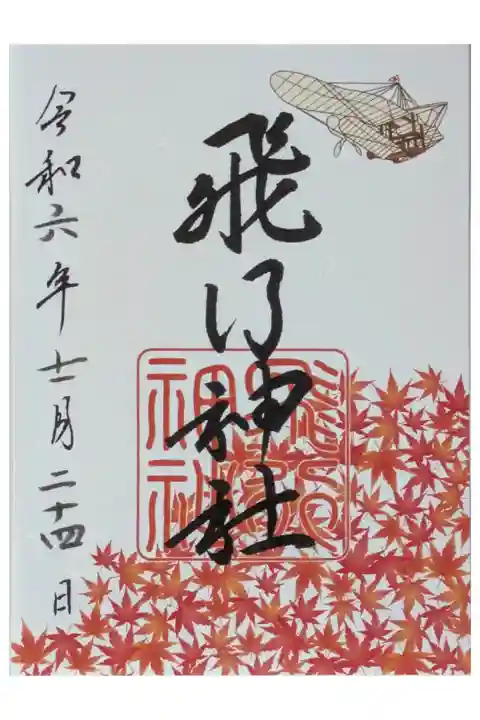 飛行神社
飛行
神社
令和六年十一月二十四日